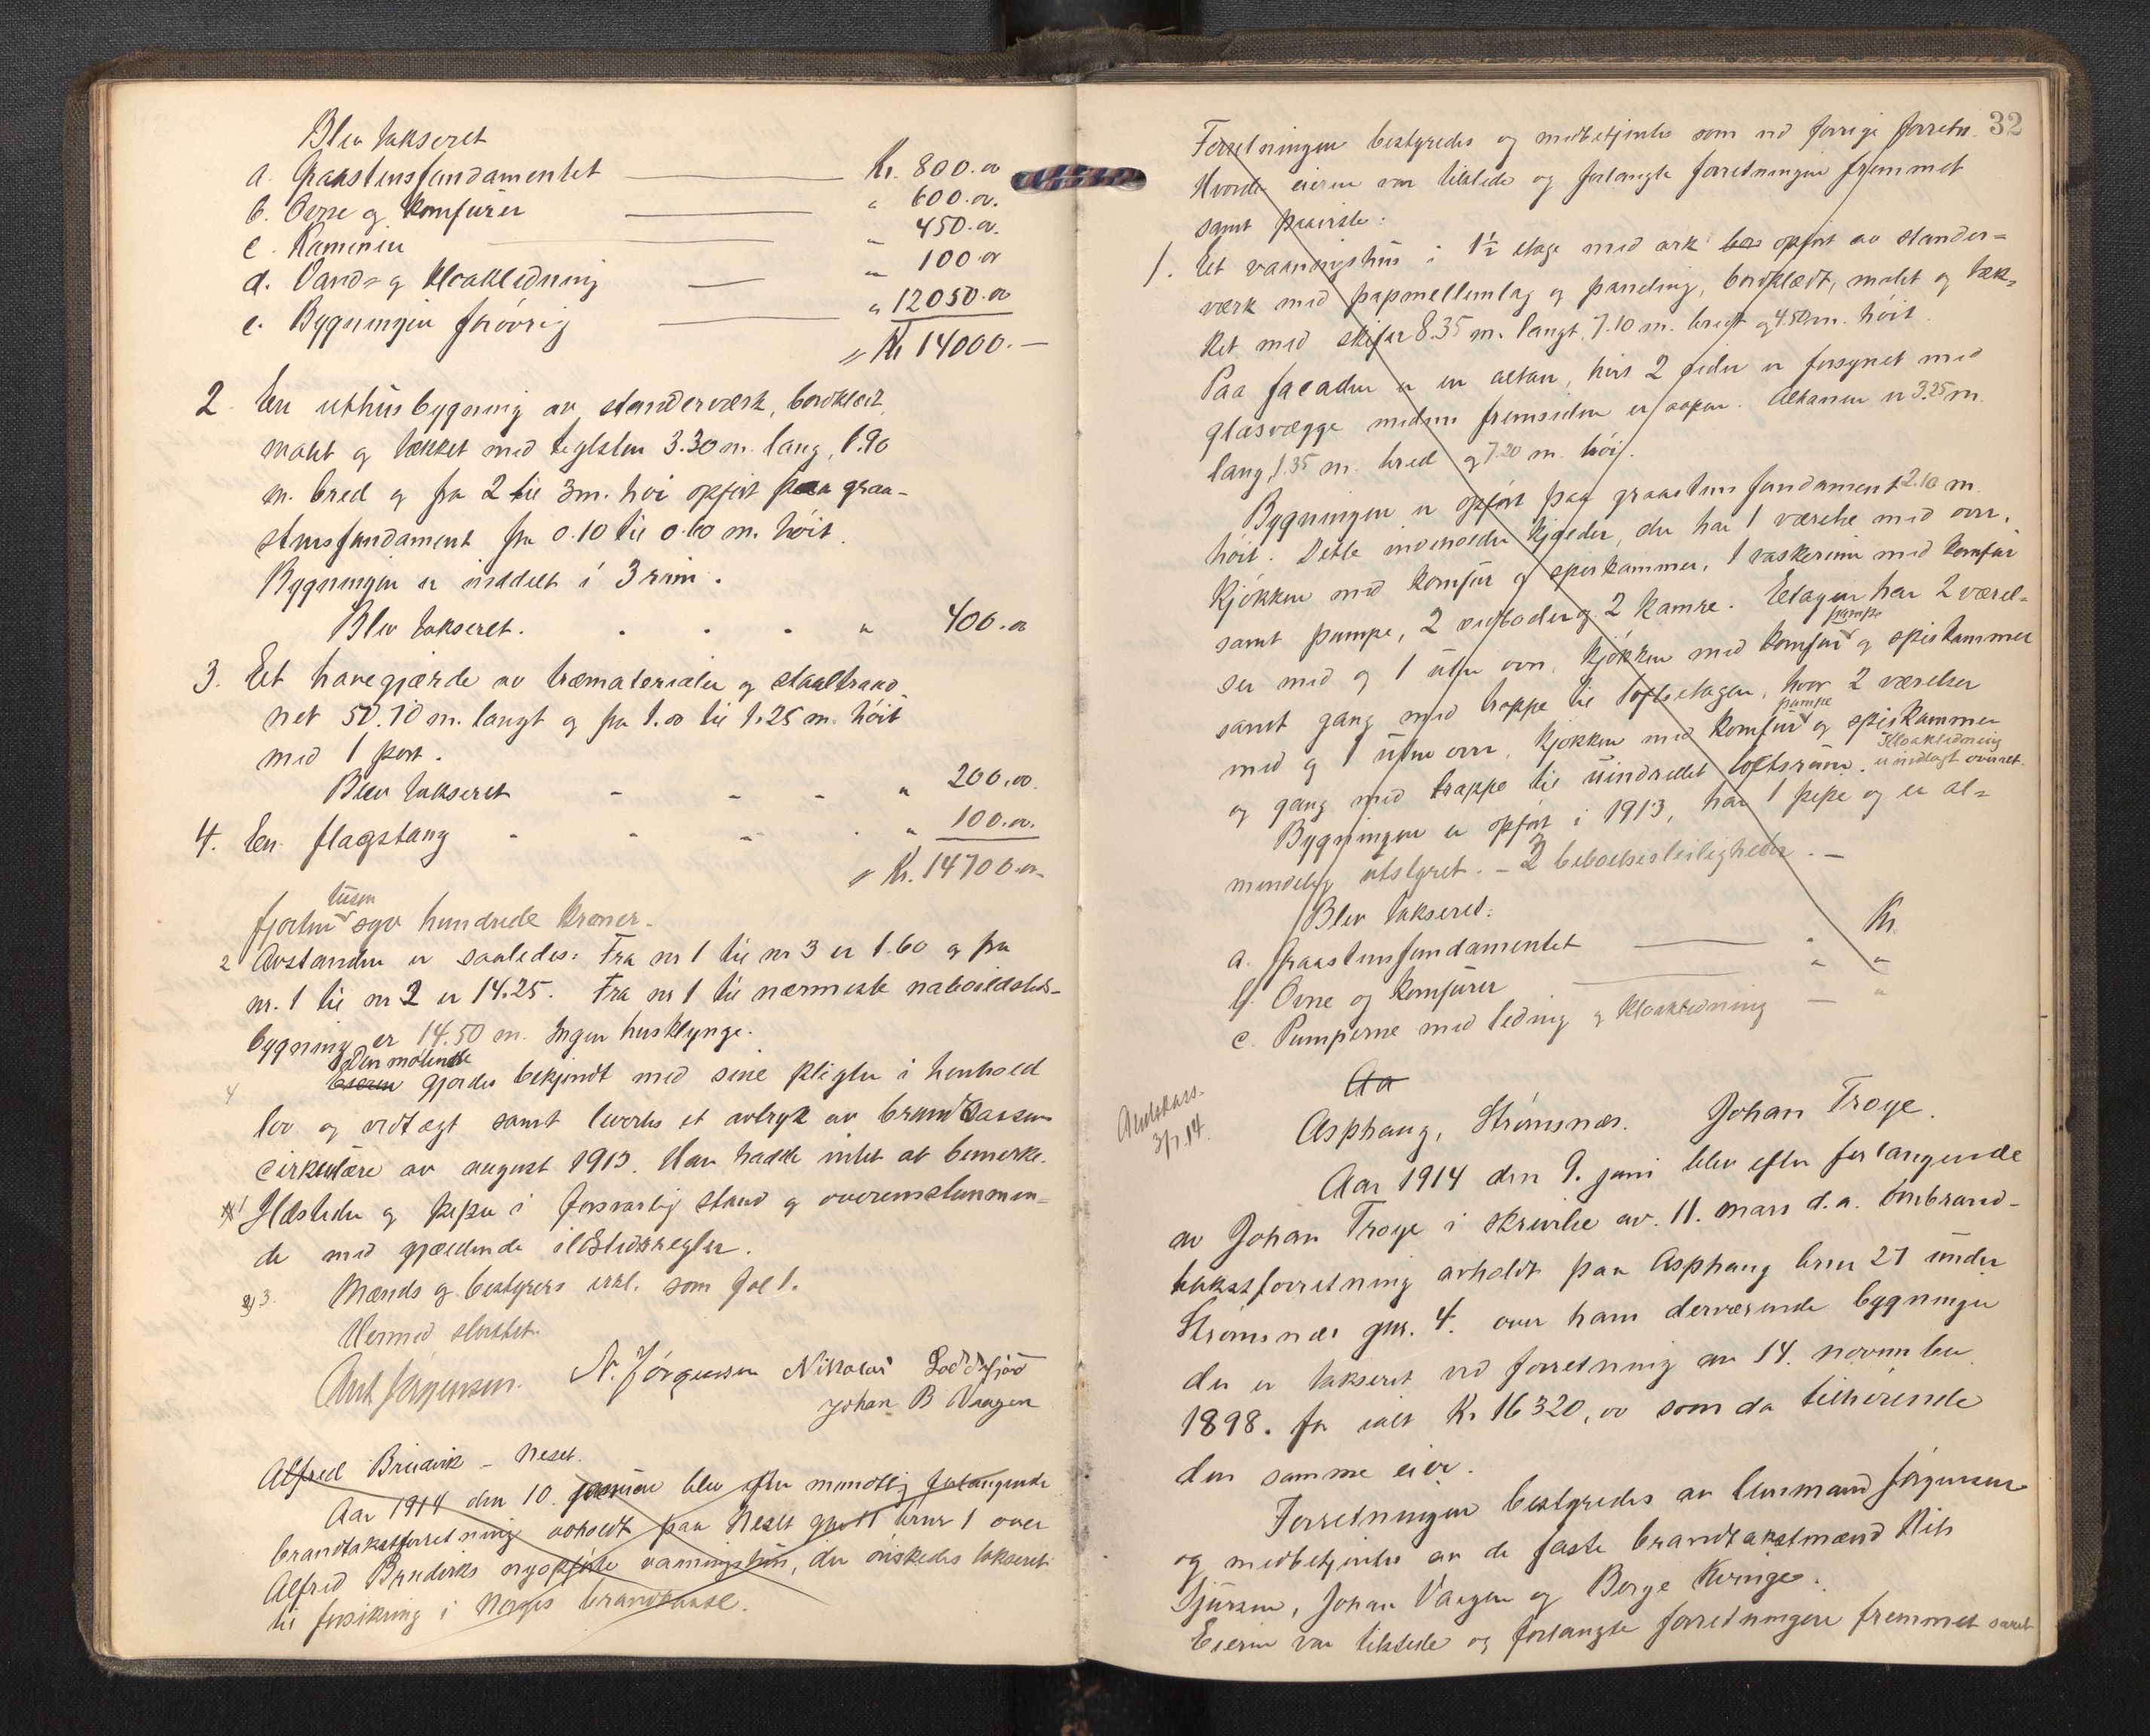 Blev takseret
a. Graastensfundamentet Kr. 800.00
b. Ovne og komfurer " 600.00.
c. Kaminen " 450.00.
d. Vand- og kloakledning " 100.00
e. Bygningen forøvrig " 12050.00
Kr 14000.—
2. En uthusbygning av standerværk, bordklædt,
malt og tækket med teglsten 3.30 m. lang, 1.90
m. bred og fra 2 til 3 m. høi opført paa graa-
stensfundament fra 0.10 til 0.60 m. høit.
Bygningen er inddelt i 3 rum.
Blev takseret. " 400.00
3. Et havegjærde av træmaterialer og staaltraad-
net 50.70 m. langt og fra 1.00 til 1.25 m. høit
med 1 port.
Blev takseret " 200.00.
4. En flagstang " 100.00.
Kr. 14700.00
tusen
fjorten syv hundrede kroner.
2 Avstanden er saaledes: Fra nr 1 til nr 3 er 1.60 og fra
nr. 1 til nr 2 er 14.25. Fra nr 1 til nærmeste naboildsteds-
bygning er 14.50 m. Ingen husklynge.
Den møtende
4 Eieren gjordes bekjendt med sine pligter i henhold
lov og vedtægt samt leverdes et avtryk av brandkassens
cirkulære av august 1913. Han hadde intet at bemerke.
1 Ildsteder og piper i forsvarlig stand og overensstemmen-
de med gjældende ildstedsregler.
3. Mænds og bestyrers erkl. som fol 1.
Hermed sluttet.
Ant Jørgensen. N. Jörgensen Nikolai Loddefjord
Johan B Vaagen
Alfred Brudvik - Neset.
Aar 1914 den 10. januar blev efter mundtlig forlangende
brandtakstforretning avholdt paa Neset gnr 11 brnr 1 over
Alfred Brudviks nyopførte vaaningshus, der ønskedes takseret
til forsikring i Norges brandkasse.
32
Forretningen bestyredes og medbetjentes som ved forrige forretn.
Hvorde eieren var tilstede og forlangte forretningen fremmet
samt paaviste:
1. Et vaaningshus i 1½ etage med ark opført av stander-
værk med papmellemlag og paneling, bordklædt, malet og tæk-
ket med skifer 8.35 m. langt, 7.10 m. bredt og 4.50 m. høit.
Paa facaden er en altan, hvis 2 sider er forsynet med
glasvægge medens fremsiden er aapen. Altanen er 3.25 m.
lang, 1.35 m. bred og 7.20 m. høi.
Bygningen er opført paa graastens fundament 2.10 m.
høit. Dette indeholder kjælder, der har 1 værelse med ovn,
kjøkken med komfur og spiskammer, 1 vaskerum med komfur
samt pumpe, 2 vedboder og 2 kamre. Etagen har 2 værel-
pumpe
ser med og 1 uten ovn, kjøkken med komfur og spiskammer
samt gang med trappe til loftsetagen, hvor 2 værelser
pumpe
med og 1 uten ovn, kjøkken med komfur og spiskammer
Kloakledning
og gang med trappe til uindredet loftsrum. er indlagt overalt.
Bygningen er opført i 1913, har 1 pipe og er al-
mindelig utstyret. - 2 beboelsesleiligheder. -
Blev takseret: Kr.
a. Graastensfundamentet "
b. Ovne og komfurer "
c. Pumperne med ledning og kloakledning "
Aa
Andskass.
3/7.14.
Asphaug, Strømsnæs. Johan Troye.
Aar 1914 den 9. juni blev efter forlangende
av Johan Troye i skrivelse av 11. mars d.a. ombrand-
takstforretning avholdt paa Asphaug brnr 27 under
Strømsnæs gnr. 4. over hans derværende bygninger
der er takseret ved forretning av 14. november
1898. for ialt Kr 16320,00 som da tilhørende
den samme eier.
Forretningen bestyredes av lensmand Jørgensen
og medbetjentes av de faste brandtakstmænd Nils
Sjursen, Johan Vaagen og Børge Kvinge.
Eieren var tilstede og forlangte forretningen fremmet samt